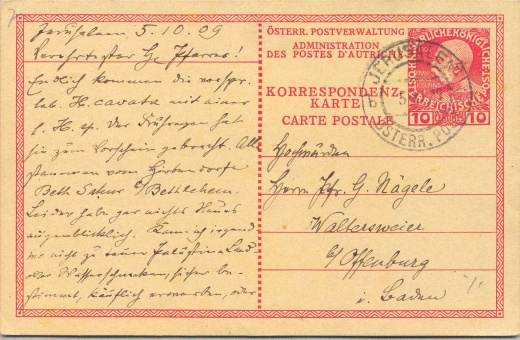 Jerusalem, 5.10.09
Verehrtester H. Pfarrer!
Endlich kommen die verspr.
leb. H. cavata mit einer
l. H. sp. Der Frühregen hat
sie zum Vorschein gebracht. Alle
stammen vom Hirtendorfe
Beth Sahur b/ Bethlehem.
Leider habe gar nichts Neues
augenblicklich. Kann ich irgend
wo nicht zu teure Palästina Land
oder Wasserschnecken, sicher be-
stimmt, käuflich erwerben, oder
ÖSTERR. POSTVERWALTUNG
ADMINISTRATION
DES POSTES D'AUTRICHE
KORRESPONDENZ-
KARTE
CARTE POSTALE
JERUSALEM
ÖSTERR. POST
10 10
Hochwürden
Herrn Pfr. G. Nägele
Waltersweier
b/ Offenburg
i. Baden